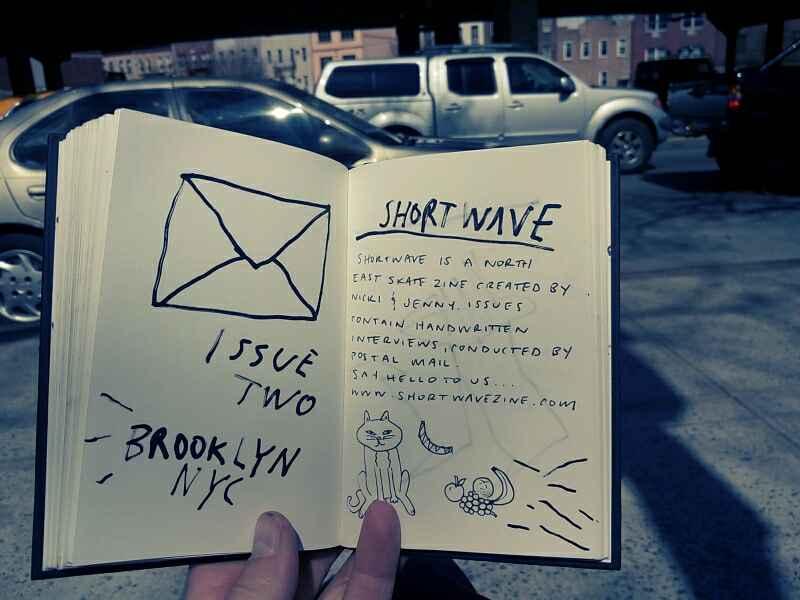 ISSUE
TWO
BROOKLYN
NYC
SHORT WAVE
SHORTWAVE IS A NORTH
EAST SKATE ZINE CREATED BY
NICKI & JENNY. ISSUES
CONTAIN HANDWRITTEN
INTERVIEWS, CONDUCTED BY
POSTAL MAIL.
SAY HELLO TO US...
WWW.SHORTWAVEZINE.COM